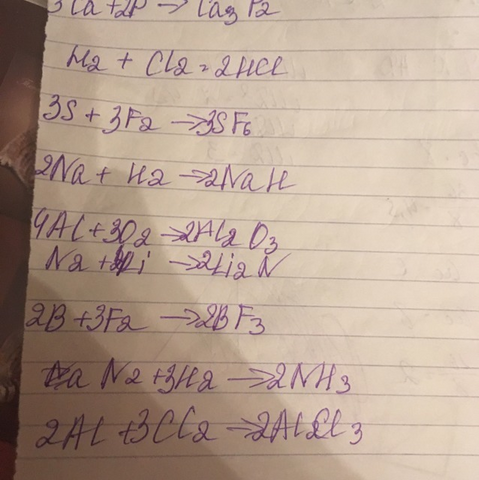 3Ca+2P → Ca3P2
H2 + Cl2 = 2HCl
3S + 3F2 → 3SF6
2Na + H2 → 2NaH
4Al + 3O2 → 2Al2O3
N2 + Li → 2Li2N
2B + 3F2 → 2BF3
N2 + 3H2 → 2NH3
2Al + 3Cl2 → 2AlCl3